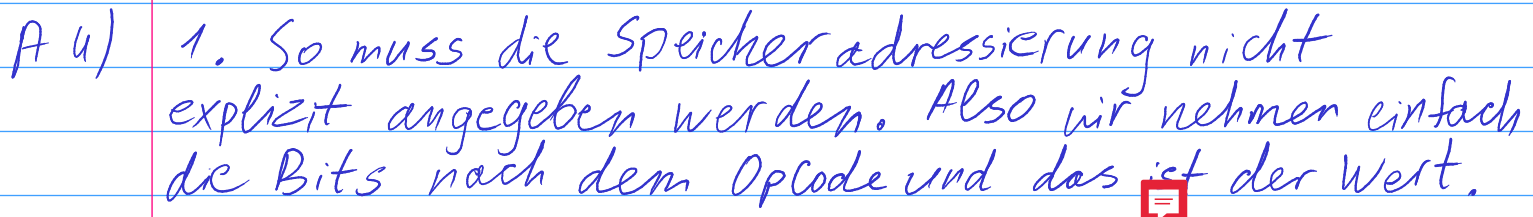 A 4) 1. So muss die Speicheradressierung nicht
explizit angegeben werden. Also wir nehmen einfach
die Bits nach dem OpCode und das ist der Wert.